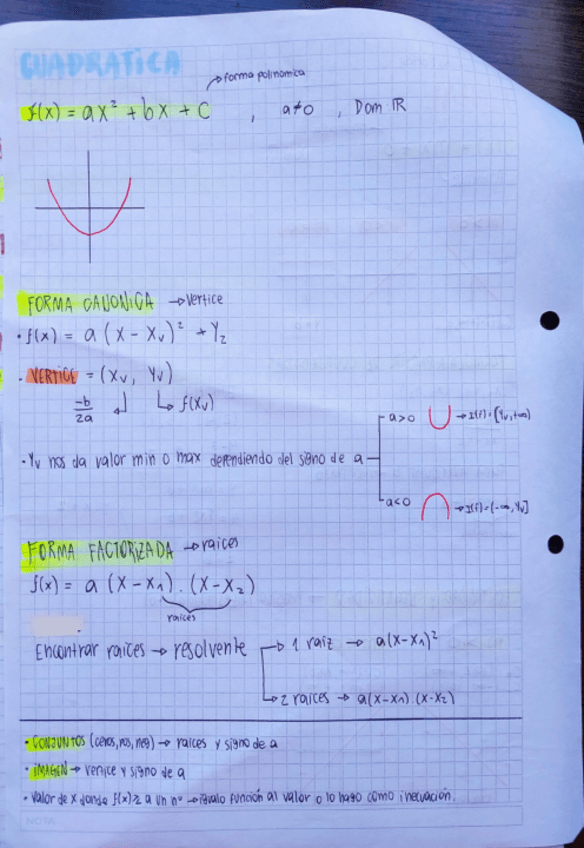 CUADRATICA
forma polinomica
f(x) = ax² + bx + C , a≠0 , Dom IR
FORMA CANONICA → vertice
• f(x) = a (x - Xv)² + Y₂
• VERTICE = (Xv, Yv)
-b/2a f(Xv)
a>0 → I(f)=[Yv,+∞)
• Yv nos da valor min o max dependiendo del signo de a
a<0 → I(f)=(-∞,Yv]
FORMA FACTORIZADA → raices
f(x) = a (x-x₁) . (x-x₂)
raices
Encontrar raices → resolvente → 1 raiz → a(x-x₁)²
→ 2 raices → a(x-x₁).(x-x₂)
• CONJUNTOS (ceros, pos, neg) → raices y signo de a
• IMAGEN → vertice y signo de a
• valor de x donde f(x) ≥ a un n° → igualo función al valor o lo hago como inecuación.
NOTA